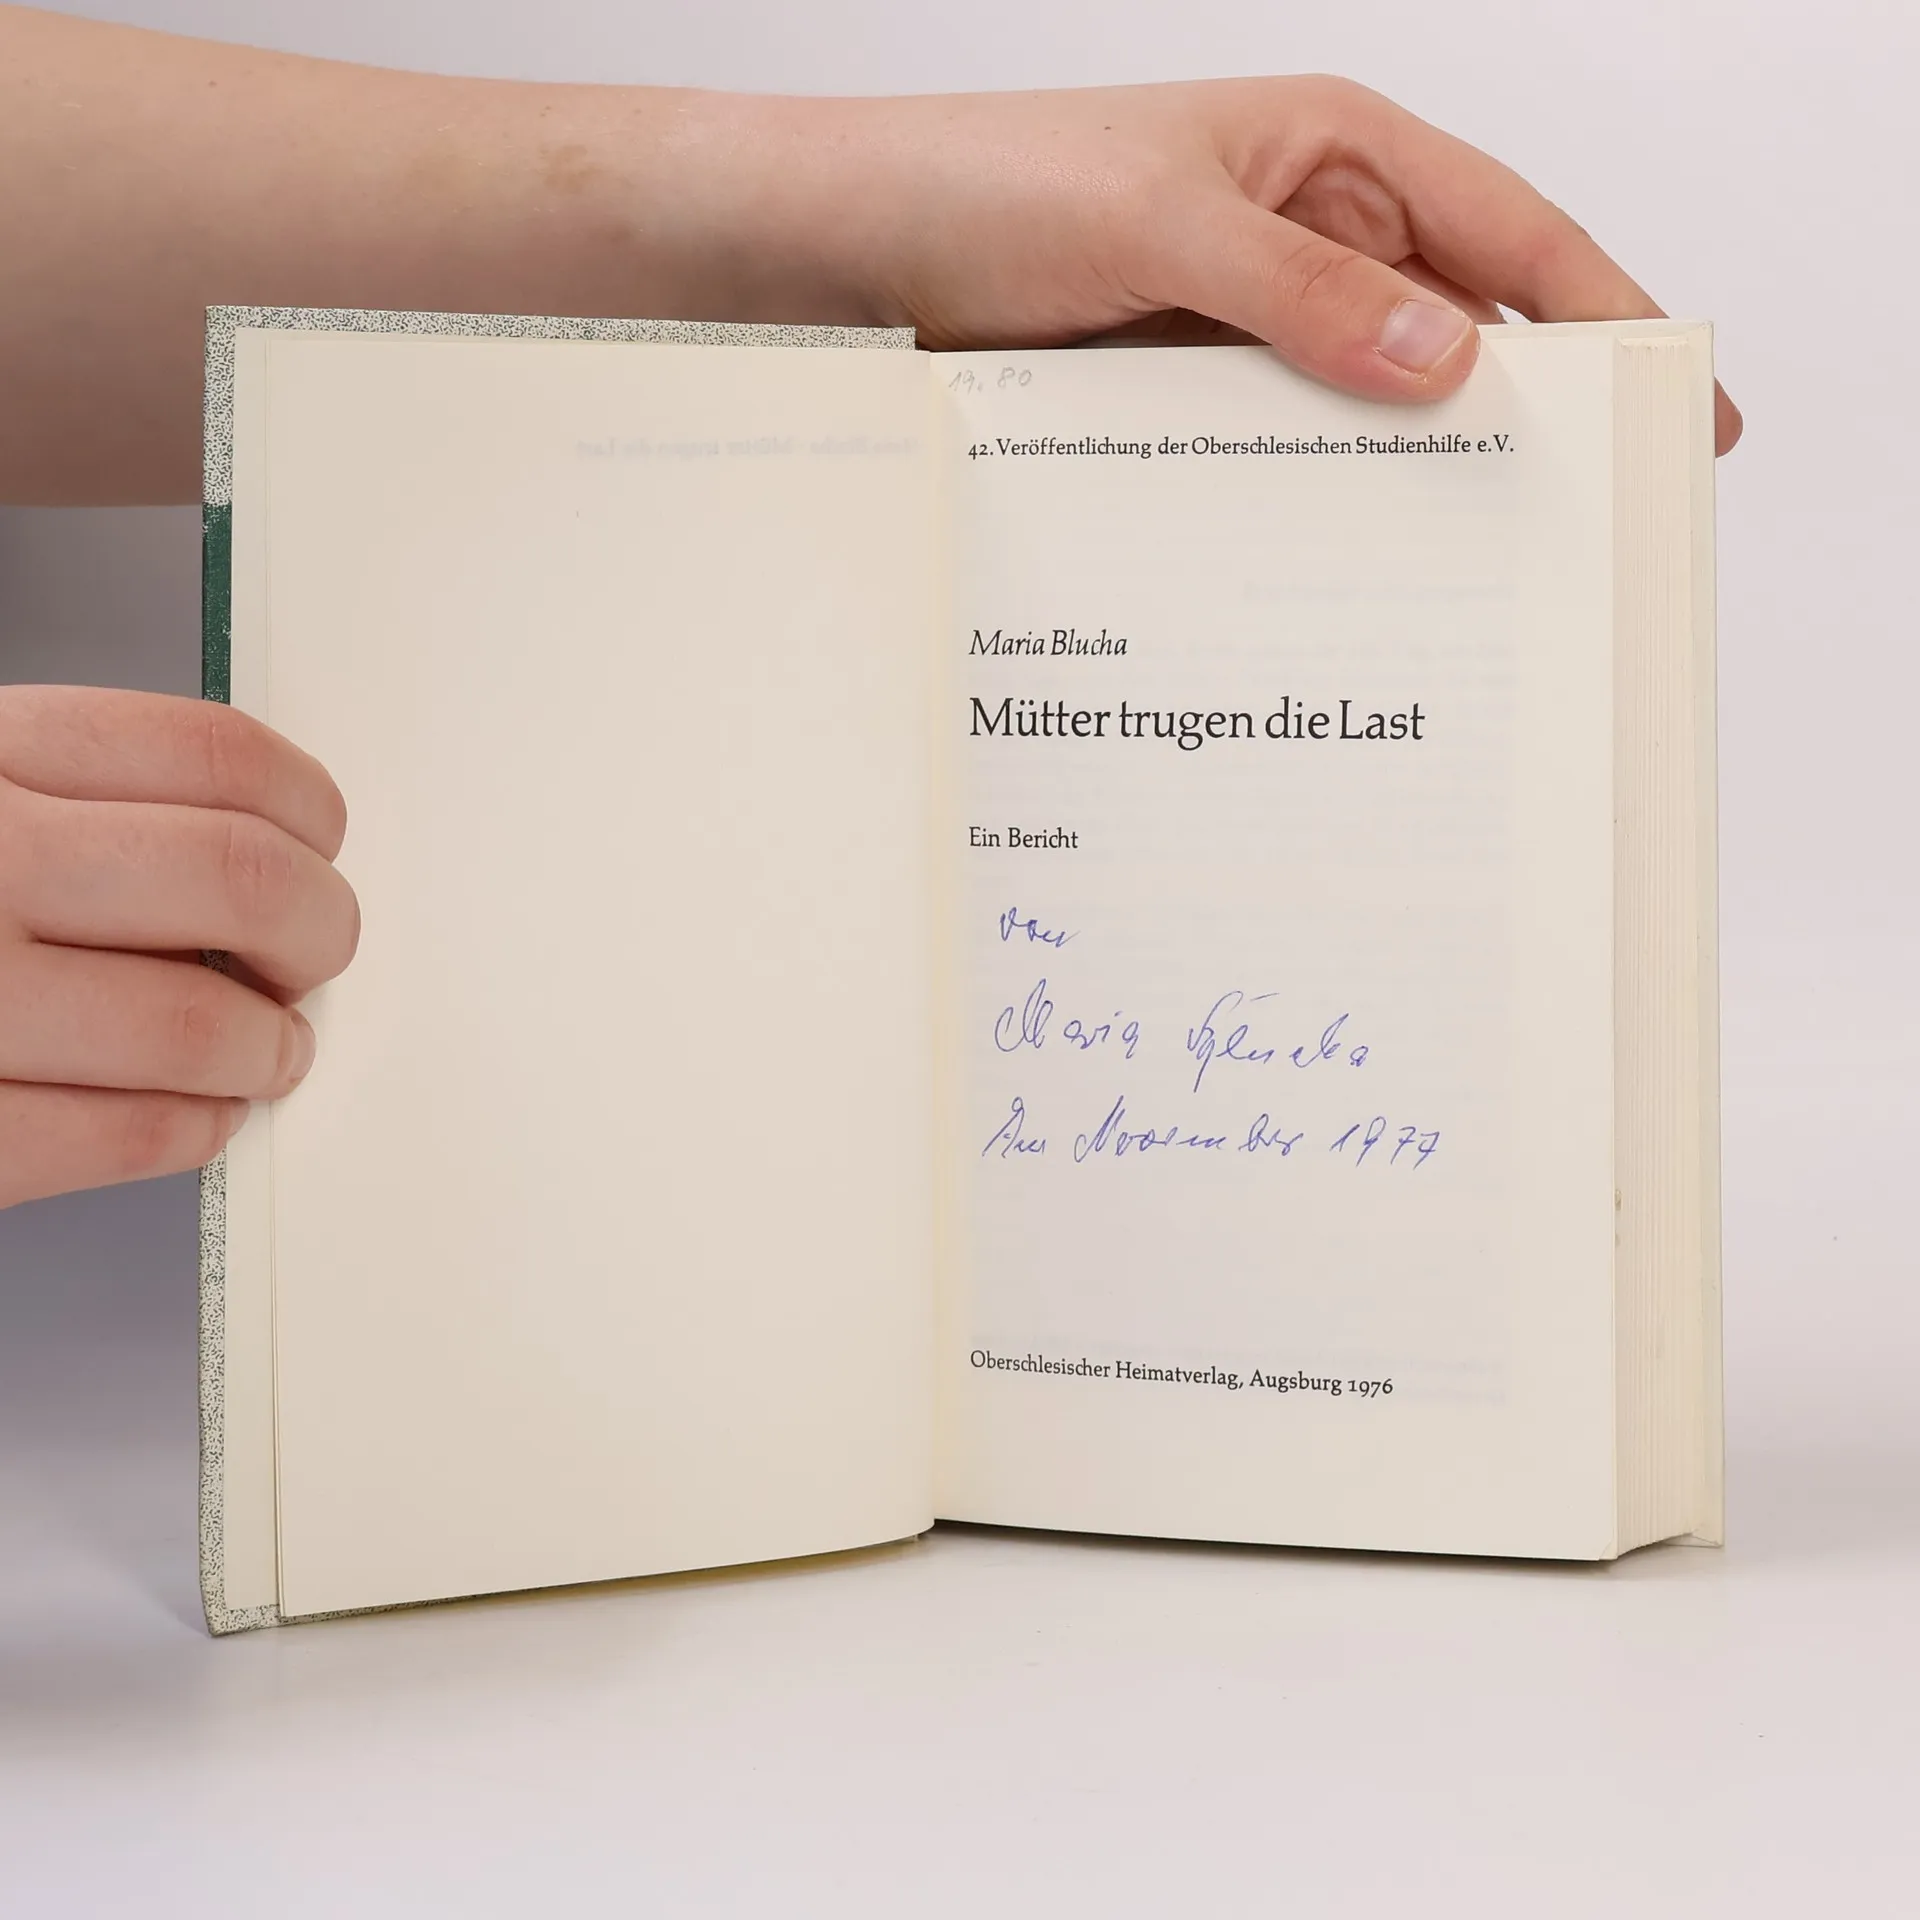 19. 80
42. Veröffentlichung der Oberschlesischen Studienhilfe e.V.
Maria Blucha
Mütter trugen die Last
Ein Bericht
von
Maria
Im November 1977
Oberschlesischer Heimatverlag, Augsburg 1976